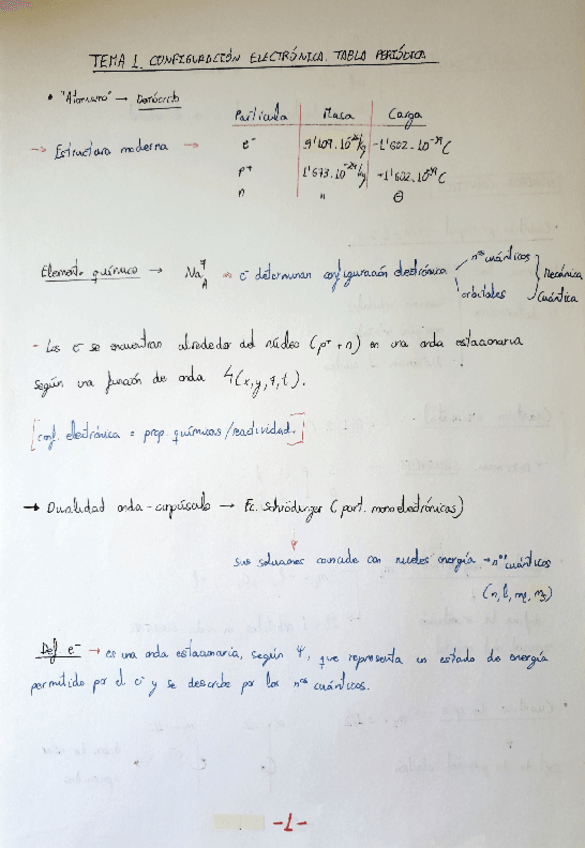 TEMA 1. CONFIGURACIÓN ELECTRÓNICA. TABLA PERIÓDICA
• "Atomismo" → Demócrito
Partícula Masa Carga
→ Estructura moderna →
e⁻ 9'109·10⁻³¹kg -1'602·10⁻¹⁹C
p⁺ 1'673·10⁻²⁷kg +1'602·10⁻¹⁹C
n " ⊖
Elemento químico → Na → e⁻ determinan configuración electrónica
nºs cuánticos
orbitales
Mecánica
Cuántica
- Los e⁻ se encuentran alrededor del núcleo (p⁺ + n) en una onda estacionaria
según una función de onda Ψ(x,y,z,t).
[conf. electrónica = prop. químicas/reactividad.]
→ Dualidad onda-corpúsculo → Ec. Schrödinger (part. monoelectrónicas)
sus soluciones coincide con niveles energía → nºs cuánticos
(n, l, ml, ms)
Def e⁻ → es una onda estacionaria, según Ψ, que representa un estado de energía
permitido por el e⁻ y se describe por los nºs cuánticos.
-1-